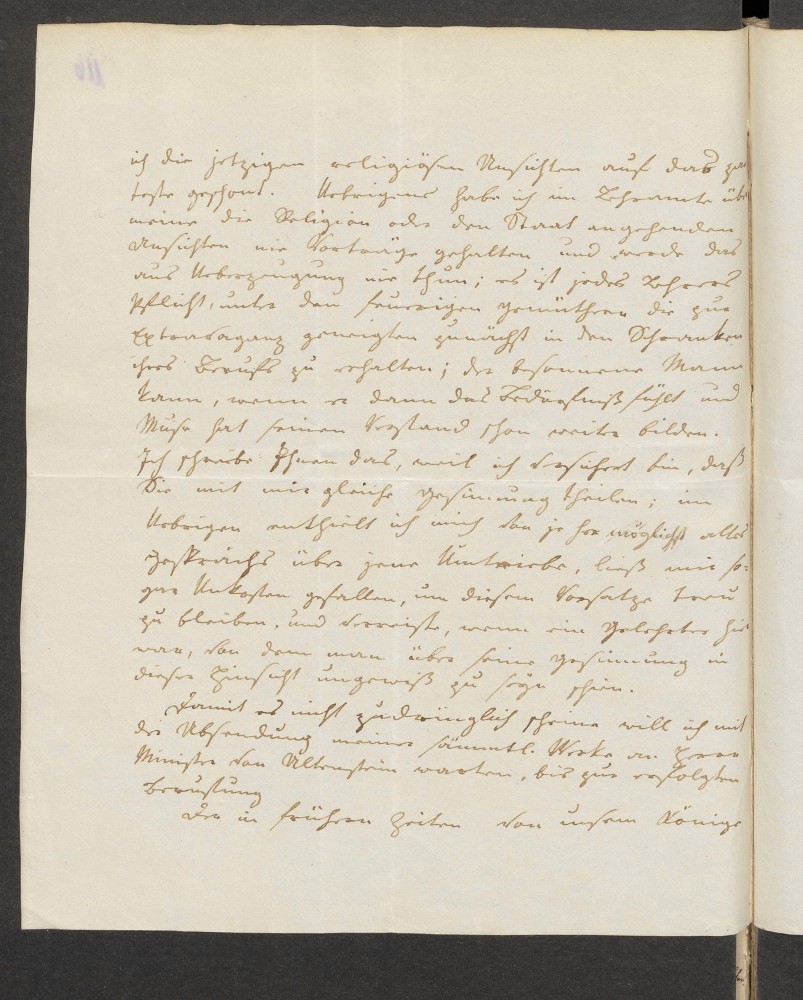 ich die jetzigen religiösen Ansichten auf das zar
teste geschont. Uebrigens habe ich im Lehramte über
meine die Religion oder den Staat angehenden
Ansichten nie Vorträge gehalten und werde das
aus Ueberzeugung nie thun; es ist jedes Lehrers
Pflicht, unter den feurigen Gemüthern die zur
Extravaganz geneigten zunächst in den Schranken
ihres Berufs zu erhalten; der besonnene Mann
kann, wenn er dann das Bedürfniß fühlt und
Muse hat seinen Verstand schon weiter bilden.
Ich schreibe Ihnen das, weil ich versichert bin, daß
Sie mit mir gleiche Gesinnung theilen; im
Uebrigen enthielt ich mich von je her möglichst alles
Gesprächs über jene Umtriebe, ließ mir so-
gar Unkosten gefallen, um diesem Vorsatze treu
zu bleiben, und verreiste, wenn ein Gelehrter hie
war, von dem man über seine Gesinnung in
dieser Hinsicht ungewiß zu seyn schien.
Damit es nicht zudringlich scheine will ich mit
der Absendung meiner sämmtl. Werke an Herrn
Minister von Altenstein warten, bis zur erfolgten
Berufung
Der in frühern Zeiten von unserm Könige